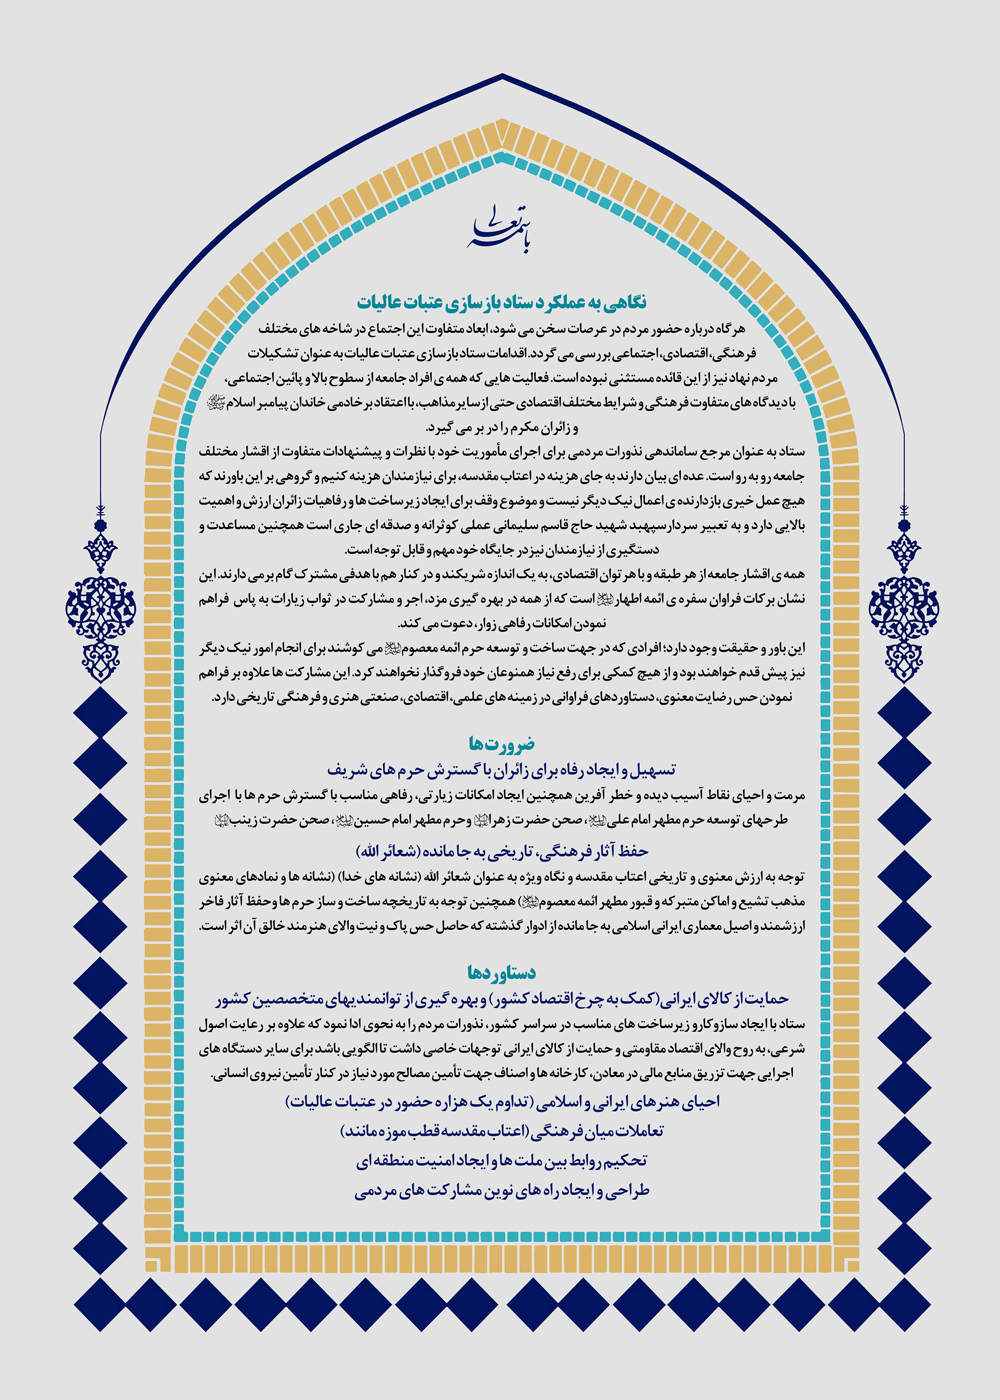 باسمه تعالی
نگاهی به عملکرد ستاد بازسازی عتبات عالیات
هرگاه درباره حضور مردم در عرصات سخن می شود، ابعاد متفاوت این اجتماع در شاخه های مختلف
فرهنگی، اقتصادی، اجتماعی بررسی می گردد. اقدامات ستاد بازسازی عتبات عالیات به عنوان تشکیلات
مردم نهاد نیز از این قائده مستثنی نبوده است. فعالیت هایی که همه ی افراد جامعه از سطوح بالا و پائین اجتماعی،
با دیدگاه های متفاوت فرهنگی و شرایط مختلف اقتصادی حتی از سایر مذاهب، با اعتقاد بر خادمی خاندان پیامبر اسلام ﷺ
و زائران مکرم را در بر می گیرد.
ستاد به عنوان مرجع ساماندهی نذورات مردمی برای اجرای مأموریت خود با نظرات و پیشنهادات متفاوت از اقشار مختلف
جامعه رو به رو است. عده ای بیان دارند به جای هزینه در اعتاب مقدسه، برای نیازمندان هزینه کنیم و گروهی بر این باورند که
هیچ عمل خیری بازدارنده ی اعمال نیک دیگر نیست و موضوع وقف برای ایجاد زیرساخت ها و رفاهیات زائران ارزش و اهمیت
بالایی دارد و به تعبیر سردار سپهبد شهید حاج قاسم سلیمانی عملی کوثرانه و صدقه ای جاری است همچنین مساعدت و
دستگیری از نیازمندان نیز در جایگاه خود مهم و قابل توجه است.
همه ی اقشار جامعه از هر طبقه و با هر توان اقتصادی، به یک اندازه شریکند و در کنار هم با هدفی مشترک گام برمی دارند. این
نشان برکات فراوان سفره ی ائمه اطهار است که از همه در بهره گیری مزد، اجر و مشارکت در ثواب زیارات به پاس فراهم
نمودن امکانات رفاهی زوار، دعوت می کند.
این باور و حقیقت وجود دارد؛ افرادی که در جهت ساخت و توسعه حرم ائمه معصوم می کوشند برای انجام امور نیک دیگر
نیز پیش قدم خواهند بود و از هیچ کمکی برای رفع نیاز همنوعان خود فروگذار نخواهند کرد. این مشارکت ها علاوه بر فراهم
نمودن حس رضایت معنوی، دستاوردهای فراوانی در زمینه های علمی، اقتصادی، صنعتی هنری و فرهنگی تاریخی دارد.
ضرورت‌ها
تسهیل و ایجاد رفاه برای زائران با گسترش حرم های شریف
مرمت و احیای نقاط آسیب دیده و خطر آفرین همچنین ایجاد امکانات زیارتی، رفاهی مناسب با گسترش حرم ها با اجرای
طرحهای توسعه حرم مطهر امام علی ، صحن حضرت زهرا وحرم مطهر امام حسین ، صحن حضرت زینب
حفظ آثار فرهنگی، تاریخی به جا مانده (شعائر الله)
توجه به ارزش معنوی و تاریخی اعتاب مقدسه و نگاه ویژه به عنوان شعائر الله (نشانه های خدا) (نشانه ها و نمادهای معنوی
مذهب تشیع و اماکن متبرکه و قبور مطهر ائمه معصوم) همچنین توجه به تاریخچه ساخت و ساز حرم ها وحفظ آثار فاخر
ارزشمند و اصیل معماری ایرانی اسلامی به جا مانده از ادوار گذشته که حاصل حس پاک و نیت والای هنرمند خالق آن اثر است.
دستاوردها
حمایت از کالای ایرانی (کمک به چرخ اقتصاد کشور) و بهره گیری از توانمندیهای متخصصین کشور
ستاد با ایجاد سازوکارو زیرساخت های مناسب در سراسر کشور، نذورات مردم را به نحوی ادا نمود که علاوه بر رعایت اصول
شرعی، به روح والای اقتصاد مقاومتی و حمایت از کالای ایرانی توجهات خاصی داشت تا الگویی باشد برای سایر دستگاه های
اجرایی جهت تزریق منابع مالی در معادن، کارخانه ها و اصناف جهت تأمین مصالح مورد نیاز در کنار تأمین نیروی انسانی.
احیای هنرهای ایرانی و اسلامی (تداوم یک هزاره حضور در عتبات عالیات)
تعاملات میان فرهنگی (اعتاب مقدسه قطب موزه مانند)
تحکیم روابط بین ملت ها و ایجاد امنیت منطقه ای
طراحی و ایجاد راه های نوین مشارکت های مردمی